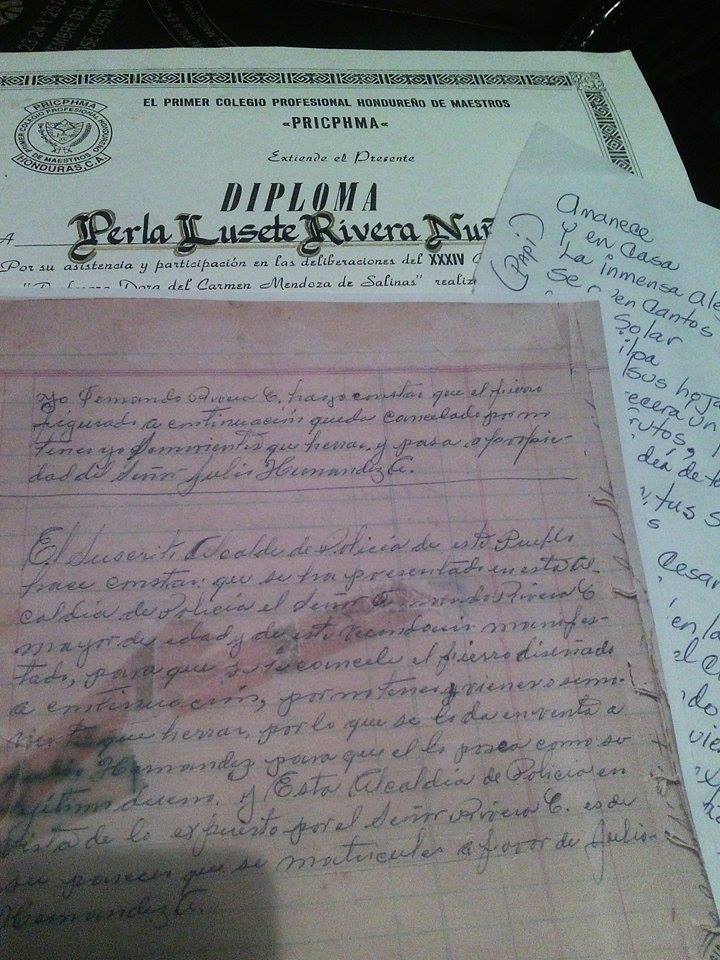 PRICPHMA
PRIMER COLEGIO PROFESIONAL HONDUREÑO
DE MAESTROS
HONDURAS, C.A.
EL PRIMER COLEGIO PROFESIONAL HONDUREÑO DE MAESTROS
«PRICPHMA«
Extiende el Presente
DIPLOMA
A Perla Lusete Rivera Nuñ
Por su asistencia y participación en las deliberaciones del XXXIV
Dora del Carmen Mendoza de Salinas" realiz
(Papi)
Amanece
y en Casa
La inmensa ale
Cantos
Solar
ilpa
sus hoja
ecera un
rutos,
tus s
s
Cesar
en la
el
do
vie
Yo Fernando Rivera C. hago constar que el fierro
figurado a continuación queda cancelado por no
tener yo semovientes que herrar, y pasa a propie-
dad del Señor Julio Hernandez
El Suscrito Alcalde de Policia de este Pueblo
hace constar: que se ha presentado en esta Al-
caldia de Policia el Señor Fernando Rivera C
mayor de edad y de este vecindario manifes-
tado, para que se le cancele el fierro diseñado
a continuación, por no tener semo-
que herrar, por lo que se lo da en venta a
Hernandez para que el lo posea como su
dueno. y Esta Alcaldia de Policia en
vista de lo expuesto por el Señor Rivera C. es de
su parecer que se matricule a favor de Julio
Hernandez